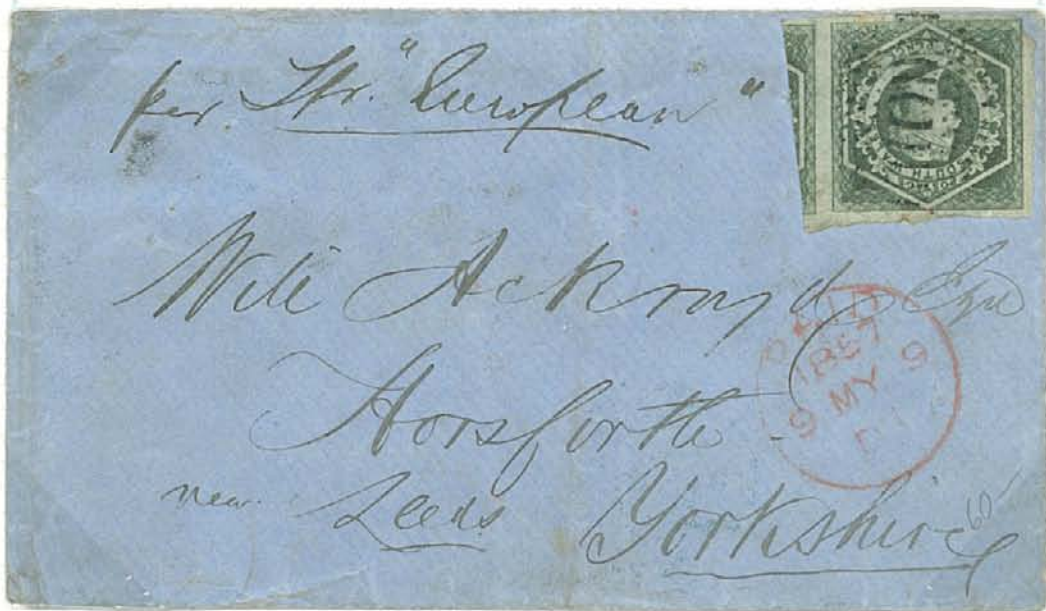 per Str. "European"
Will Ackroyd Esqr
Horsforth
near Leeds Yorkshire
PAID
1857
9 MY 9
60